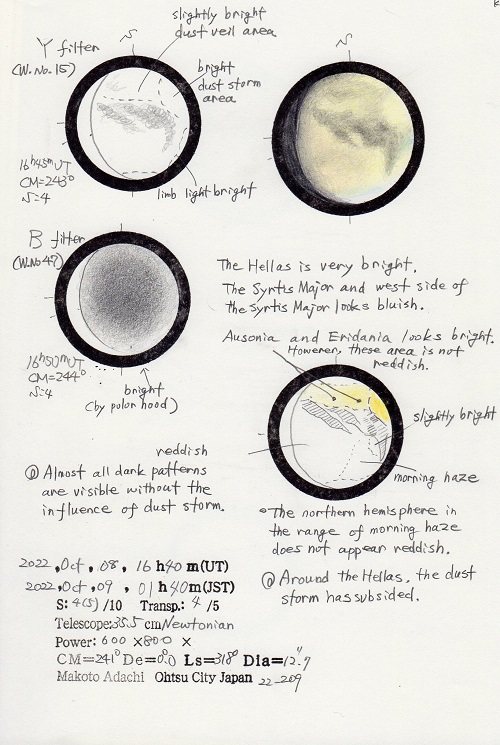 Y filter
(W.No.15)
N
slightly bright
dust veil area
bright
dust storm
area
16h45mUT
CM=243°
S=4
limb light bright
N
B filter
(W.No47)
16h50mUT
CM=244°
S=4
bright
(by polor hood)
The Hellas is very bright.
The Syrtis Major and west side of
the Syrtis Major looks bluish.
Ausonia and Eridania looks bright.
However, these area is not
reddish.
slightly bright
morning haze
reddish
◎ Almost all dark patterns
are visible without the
influence of dust storm.
○ The northern hemisphere in
the range of morning haze
does not appear reddish.
◎ Around the Hellas, the dust
storm has subsided.
2022, Oct, 08, 16 h40 m(UT)
2022, Oct, 09, 01 h40m(JST)
S: 4(5) /10 Transp.: 4 /5
Telescope:35.5 cm/Newtonian
Power: 600 ×800 ×
CM=241° De=0.0° Ls=318° Dia=12.″7
Makoto Adachi Ohtsu City Japan 22-209